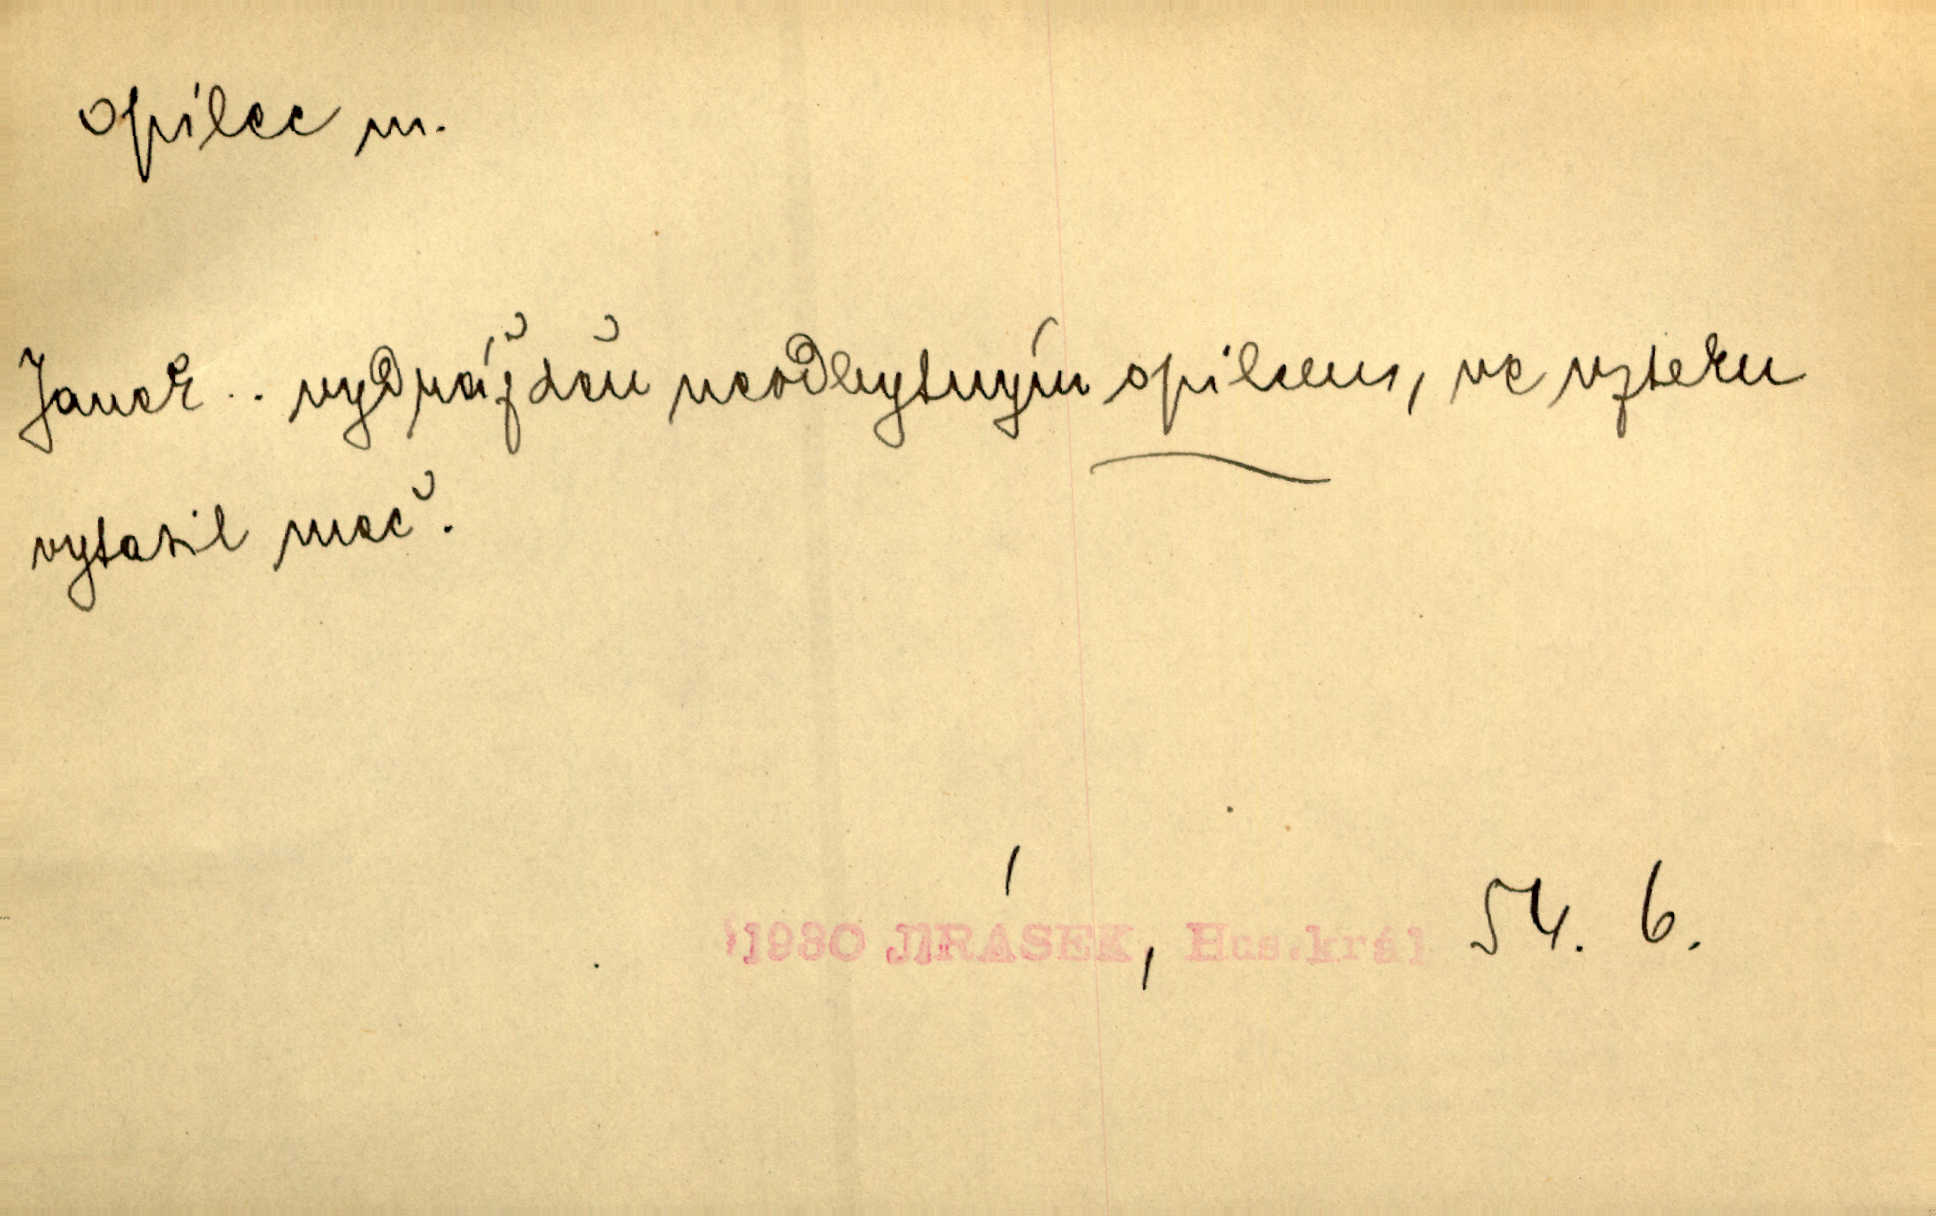 opilec m.
Janek .. vydrážděn neodbytným opilcem, ve vzteku
vytasil meč.
1930 JIRÁSEK, Hus.král 54. 6.